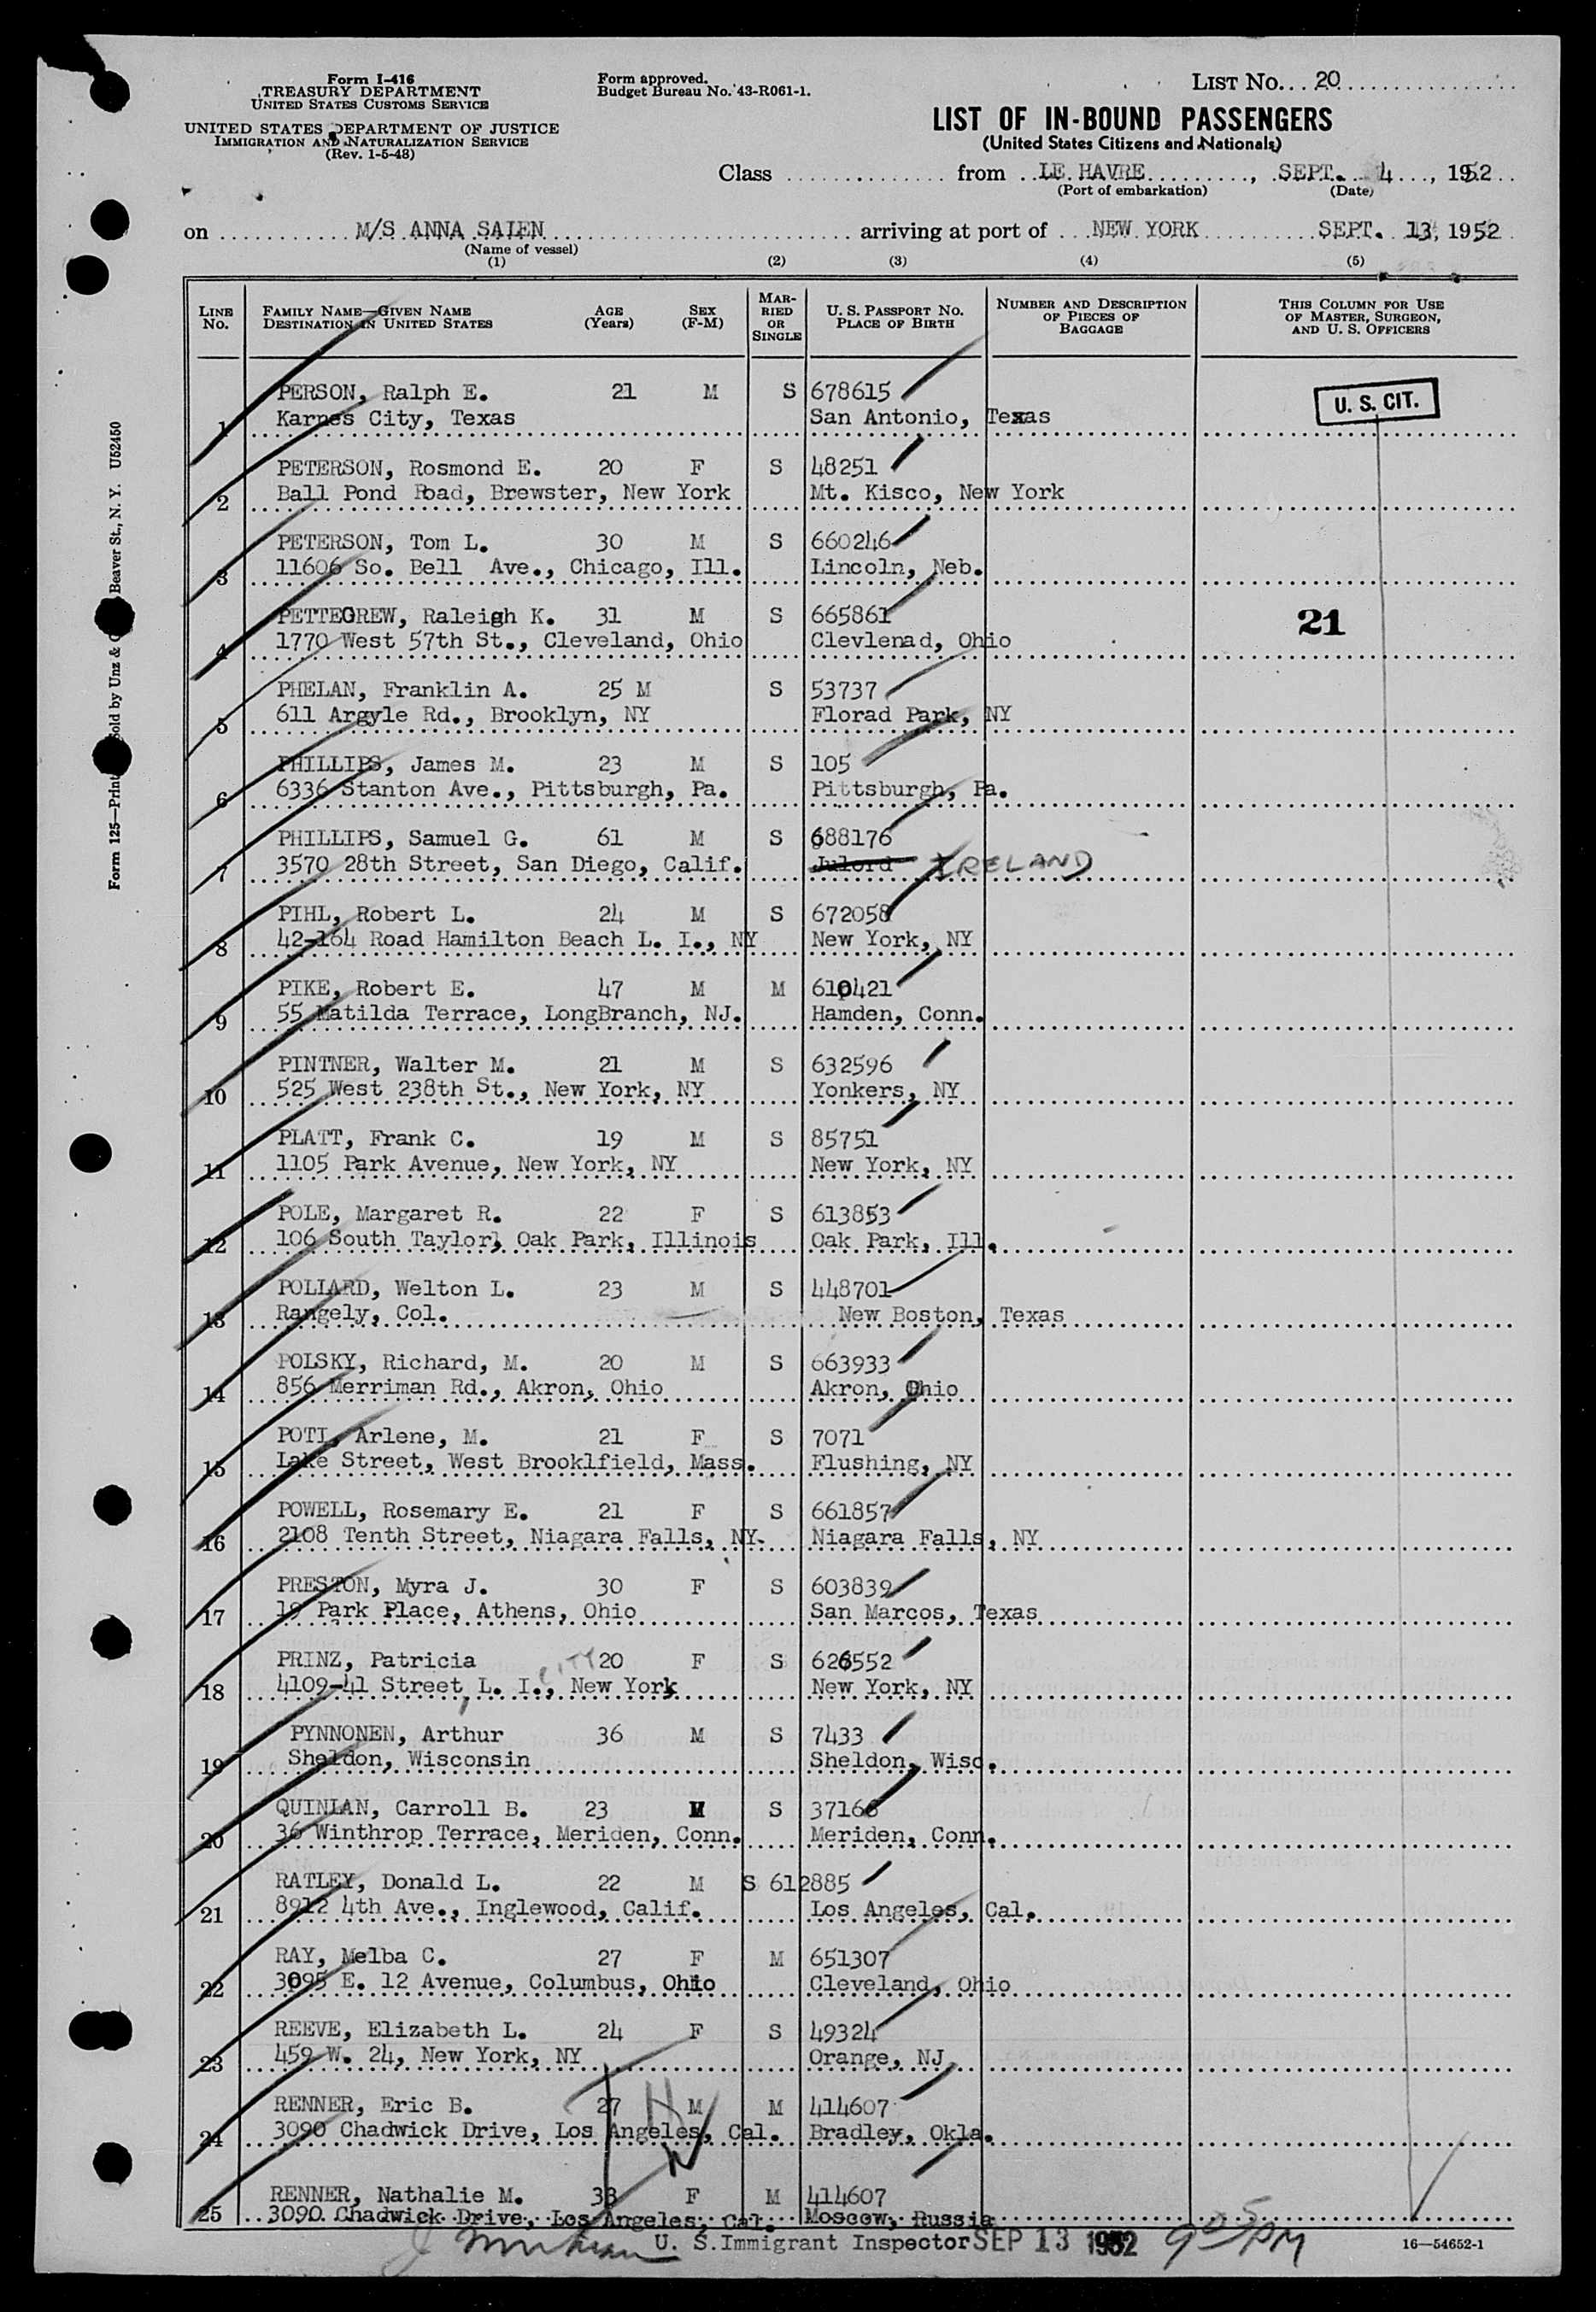 Form I-416
TREASURY DEPARTMENT
UNITED STATES CUSTOMS SERVICE
UNITED STATES DEPARTMENT OF JUSTICE
IMMIGRATION AND NATURALIZATION SERVICE
(Rev. 1-5-48)
Form approved.
Budget Bureau No. 43-R061-1.
LIST NO. 20
LIST OF IN-BOUND PASSENGERS
(United States Citizens and Nationals)
Class from LE HAVRE, SEPT. 4, 1952
(Port of embarkation) (Date)
on M/S ANNA SALEN arriving at port of NEW YORK SEPT. 13, 1952
(Name of vessel)
(1) (2) (3) (4) (5)
LINE No. FAMILY NAME—GIVEN NAME DESTINATION IN UNITED STATES AGE (Years) SEX (F-M) MARRIED OR SINGLE U. S. PASSPORT NO. PLACE OF BIRTH NUMBER AND DESCRIPTION OF PIECES OF BAGGAGE THIS COLUMN FOR USE OF MASTER, SURGEON, AND U. S. OFFICERS
PERSON, Ralph E. 21 M S 678615 U. S. CIT.
1 Karnes City, Texas San Antonio, Texas
PETERSON, Rosmond E. 20 F S 48251
2 Ball Pond Road, Brewster, New York Mt. Kisco, New York
PETERSON, Tom L. 30 M S 660246
3 11606 So. Bell Ave., Chicago, Ill. Lincoln, Neb.
PETTEGREW, Raleigh K. 31 M S 665861 21
4 1770 West 57th St., Cleveland, Ohio Clevlenad, Ohio
PHELAN, Franklin A. 25 M S 53737
5 611 Argyle Rd., Brooklyn, NY Florad Park, NY
PHILLIPS, James M. 23 M S 105
6 6336 Stanton Ave., Pittsburgh, Pa. Pittsburgh, Pa.
PHILLIPS, Samuel G. 61 M S 688176
7 3570 28th Street, San Diego, Calif. Julord IRELAND
PIHL, Robert L. 24 M S 672058
8 42-164 Road Hamilton Beach L. I., NY New York, NY
PIKE, Robert E. 47 M M 610421
9 55 Matilda Terrace, LongBranch, NJ. Hamden, Conn.
PINTNER, Walter M. 21 M S 632596
10 525 West 238th St., New York, NY Yonkers, NY
PLATT, Frank C. 19 M S 85751
11 1105 Park Avenue, New York, NY New York, NY
POLE, Margaret R. 22 F S 613853
12 106 South Taylor, Oak Park, Illinois Oak Park, Ill.
POLLARD, Welton L. 23 M S 448701
13 Rangely, Col. New Boston, Texas
POLSKY, Richard, M. 20 M S 663933
14 856 Merriman Rd., Akron, Ohio Akron, Ohio
POTI, Arlene, M. 21 F S 7071
15 Lake Street, West Brooklfield, Mass. Flushing, NY
POWELL, Rosemary E. 21 F S 661857
16 2108 Tenth Street, Niagara Falls, NY. Niagara Falls, NY
PRESTON, Myra J. 30 F S 603839
17 19 Park Place, Athens, Ohio San Marcos, Texas
PRINZ, Patricia CITY 20 F S 626552
18 4109-41 Street, L. I., New York New York, NY
PYNNONEN, Arthur 36 M S 7433
19 Sheldon, Wisconsin Sheldon, Wisc.
QUINLAN, Carroll B. 23 M S 37166
20 36 Winthrop Terrace, Meriden, Conn. Meriden, Conn.
RATLEY, Donald L. 22 M S 612885
21 8912 4th Ave., Inglewood, Calif. Los Angeles, Cal.
RAY, Melba C. 27 F M 651307
22 3095 E. 12 Avenue, Columbus, Ohio Cleveland, Ohio
REEVE, Elizabeth L. 24 F S 49324
23 459 W. 24, New York, NY Orange, NJ
RENNER, Eric B. 27 M M 414607
24 3090 Chadwick Drive, Los Angeles, Cal. Bradley, Okla.
RENNER, Nathalie M. 33 F M 414607
25 3090 Chadwick Drive, Los Angeles, Cal. Moscow, Russia
U. S. Immigrant Inspector SEP 13 1952 905PM
16—54652-1
Form 125—Print Sold by Unz & Beaver St., N. Y. U52450